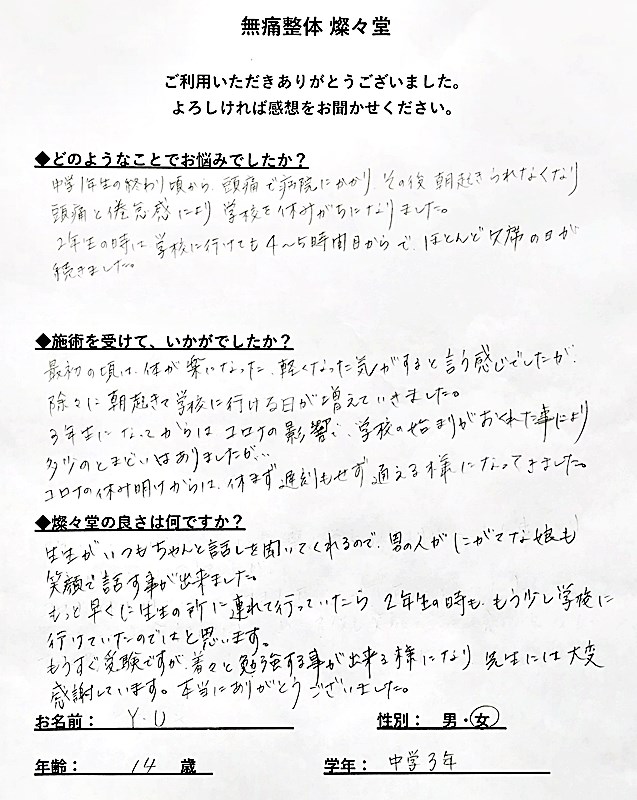 無痛整体 燦々堂
ご利用いただきありがとうございました。
よろしければ感想をお聞かせください。
◆どのようなことでお悩みでしたか？
中学1年生の終わり頃から、頭痛で病院にかかり その後 朝起きられなくなり
頭痛と倦怠感により 学校を休みがちになりました。
2年生の時は 学校に行けても 4～5時間目からで、ほとんど欠席の日が
続きました。
◆施術を受けて、いかがでしたか？
最初の頃は、体が楽になった、軽くなった気がすると言う感じでしたが、
除々に 朝起きて学校に行ける日が増えていきました。
3年生になってからは コロナの影響で、学校の始まりがおくれた事により
多少のとまどいはありましたが、
コロナの休み明けからは、休まず遅刻もせず 通える様になってきました。
◆燦々堂の良さは何ですか？
先生がいつもちゃんと話しを聞いてくれるので、男の人がにがてな娘も
笑顔で話す事が出来ました。
もっと早くに先生の所に連れて行っていたら 2年生の時も、もう少し学校に
行けていたのではと思います。
もうすぐ受験ですが、着々と勉強する事が出来る様になり 先生には大変
感謝しています。本当にありがとうございました。
お名前： Y・U 性別： 男・女
年齢： 14 歳 学年： 中学3年